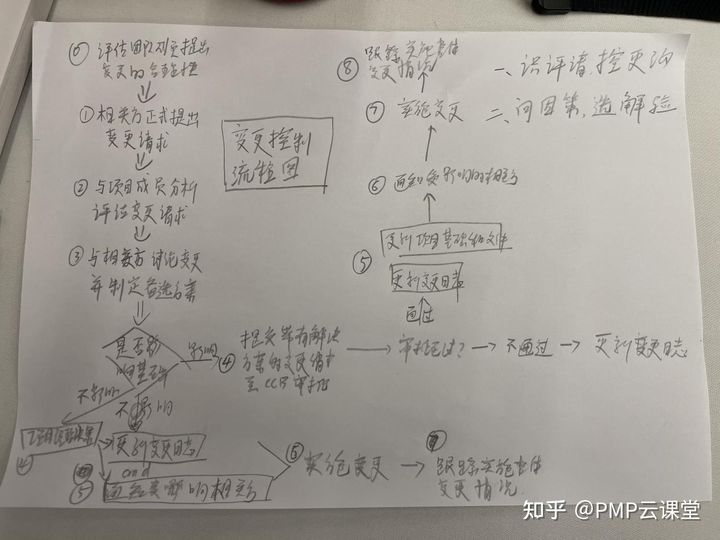 ⓪ 评估团队成员提出
变更的合理性
① 相关方正式提出
变更请求
② 与项目成员分析
评估变更请求
③ 与相关方讨论变更
并制定备选方案
是否影
响基准
影响
不影响
不影响
④
更新变更日志
and
⑤ 通知受影响相关方
⑥ 实施变更
⑦ 跟踪实施
变更情况
变更控制
流程图
④ 提交带有解决
方案的变更请求
至CCB审批
审批通过?
不通过
更新变更日志
通过
⑤
更新变更日志
更新项目基础和文件
⑥ 通知受影响的相关方
⑦ 实施变更
⑧ 跟踪实施
变更情况
一、识评请,控更沟
二、问因策,选解验
知乎 @PMP云课堂